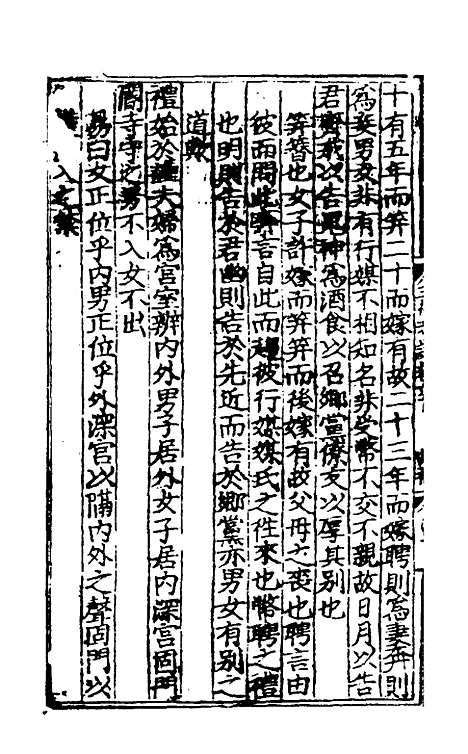 十有五年而筓二十而嫁有故二十三年而嫁聘則為妻奔則
為妾男女非有行媒不相知名非受幣不交不親故日月以告
君齊戒以告鬼神為酒食以召鄉黨僚友以厚其别也
筓簪也女子許嫁而筓筓而後嫁有故父母之喪也聘言由
彼而問此奔言自此而趨彼行媒媒氏之徃來也幣聘之禮
也明則告於君幽則告於先近而告於鄉黨亦男女有别之
道歟
禮始於謹夫婦為宮室辨内外男子居外女子居内深宮固門
閽寺守之男不入女不出
易曰女正位乎内男正位乎外深宮以隔内外之聲固門以
入之